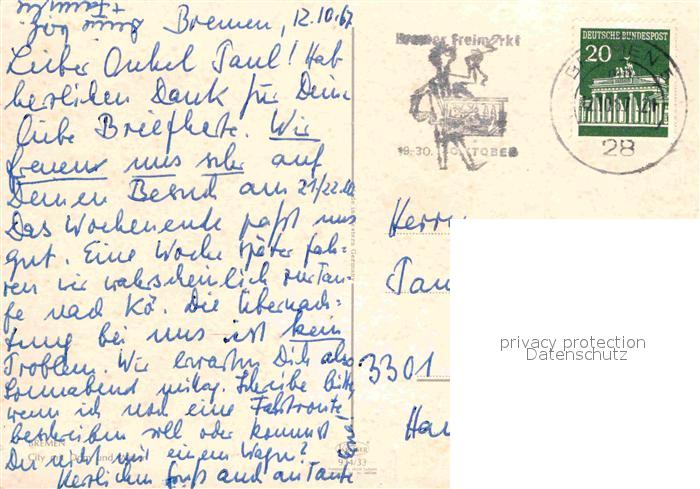 Bremen, 12.10.67
Lieber Onkel Paul! Hab
herzlichen Dank für Deine
liebe Briefkarte. Wir
freuen uns sehr auf
Deinen Besuch am 21/22.10.
Das Wochenende paßt uns
gut. Eine Woche später fah-
ren wir wahrscheinlich zur Tau-
fe nach Kö. Die Übernach-
tung bei uns ist kein
Problem. Wir erwarten Dich also
Sonnabend mittag. Schreibe bitte,
wenn ich noch eine Fahrtroute
beschreiben soll oder kommst
Du nicht mit einem Wagen?
Herzlichen Gruß auch an Tante
BREMEN
City mit Dom und
934/33
Bremer Freimarkt
19.-30. OKTOBER
DEUTSCHE BUNDESPOST
20
BREMEN
28
Herrn
Pau
3301
Ha
privacy protection
Datenschutz